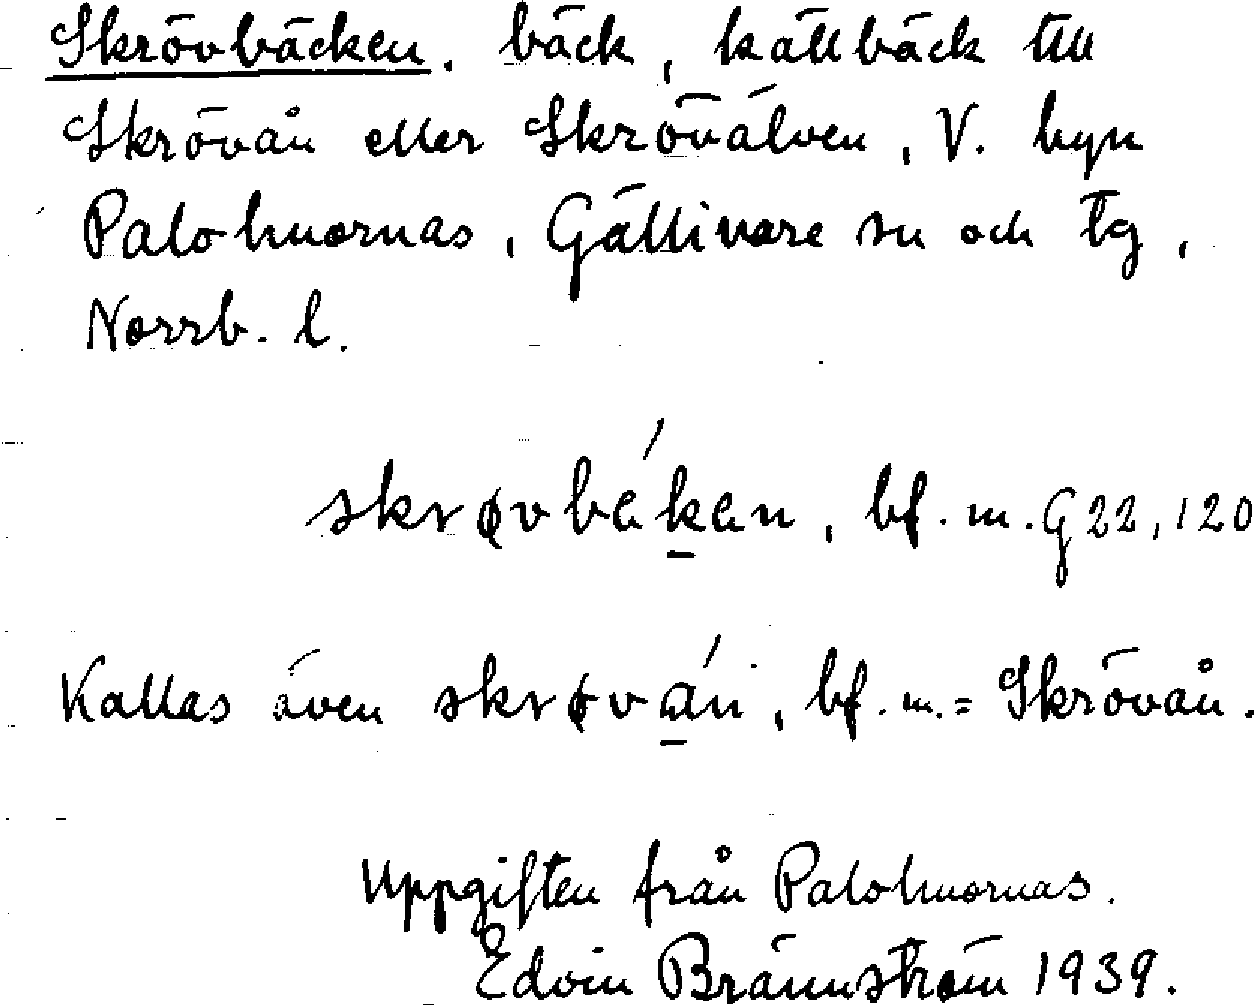 Skrövbäcken. bäck, källbäck till
Skrövån eller Skrövälven, V. byn
Palohuornas, Gällivare sn och tg,
Norrb. l.
skrøvbéken, bf. m. G 22, 120
Kallas även skrøván, bf. m. = Skrövån.
Uppgiften från Palohuornas.
Edvin Brännström 1939.